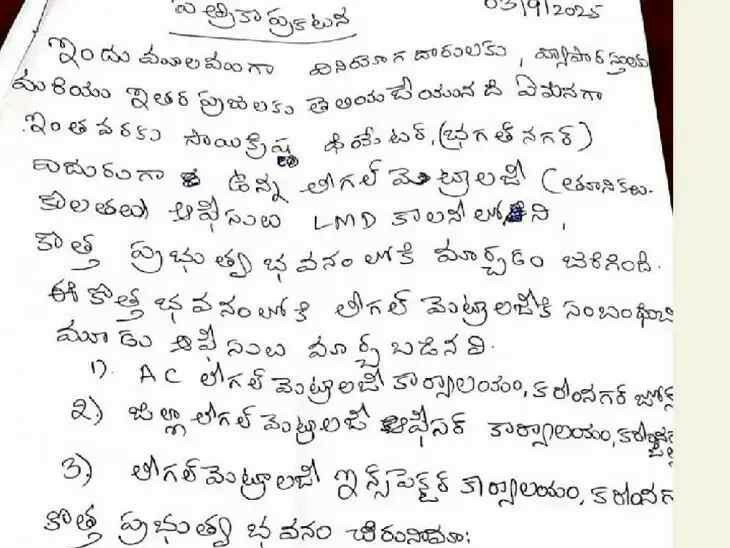 పత్రికా ప్రకటన
03/9/2025
ఇందు మూలముగా వినియోగదారులకు, వ్యాపారస్తులకు
మరియు ఇతర ప్రజలకు తెలియచేయునది ఏమనగా
ఇంత వరకు సాయికృష్ణ థియేటర్, (భగత్ నగర్)
ఎదురుగా ఉన్న లీగల్ మెట్రాలజీ (తూనికలు.
కొలతలు ఆఫీసులు LMD కాలనీ లోని,
కొత్త ప్రభుత్వ భవనంలోకి మార్చడం జరిగింది.
ఈ కొత్త భవనంలోకి లీగల్ మెట్రాలజీకి సంబంధించి
మూడు ఆఫీసులు మార్చబడినవి.
1). AC లీగల్ మెట్రాలజీ కార్యాలయం, కరీంనగర్ జోన్
2) జిల్లా లీగల్ మెట్రాలజీ ఆఫీసర్ కార్యాలయం,
3) లీగల్ మెట్రాలజీ ఇన్స్పెక్టర్ కార్యాలయం, కరీంనగ
కొత్త ప్రభుత్వ భవనం చిరునామా: